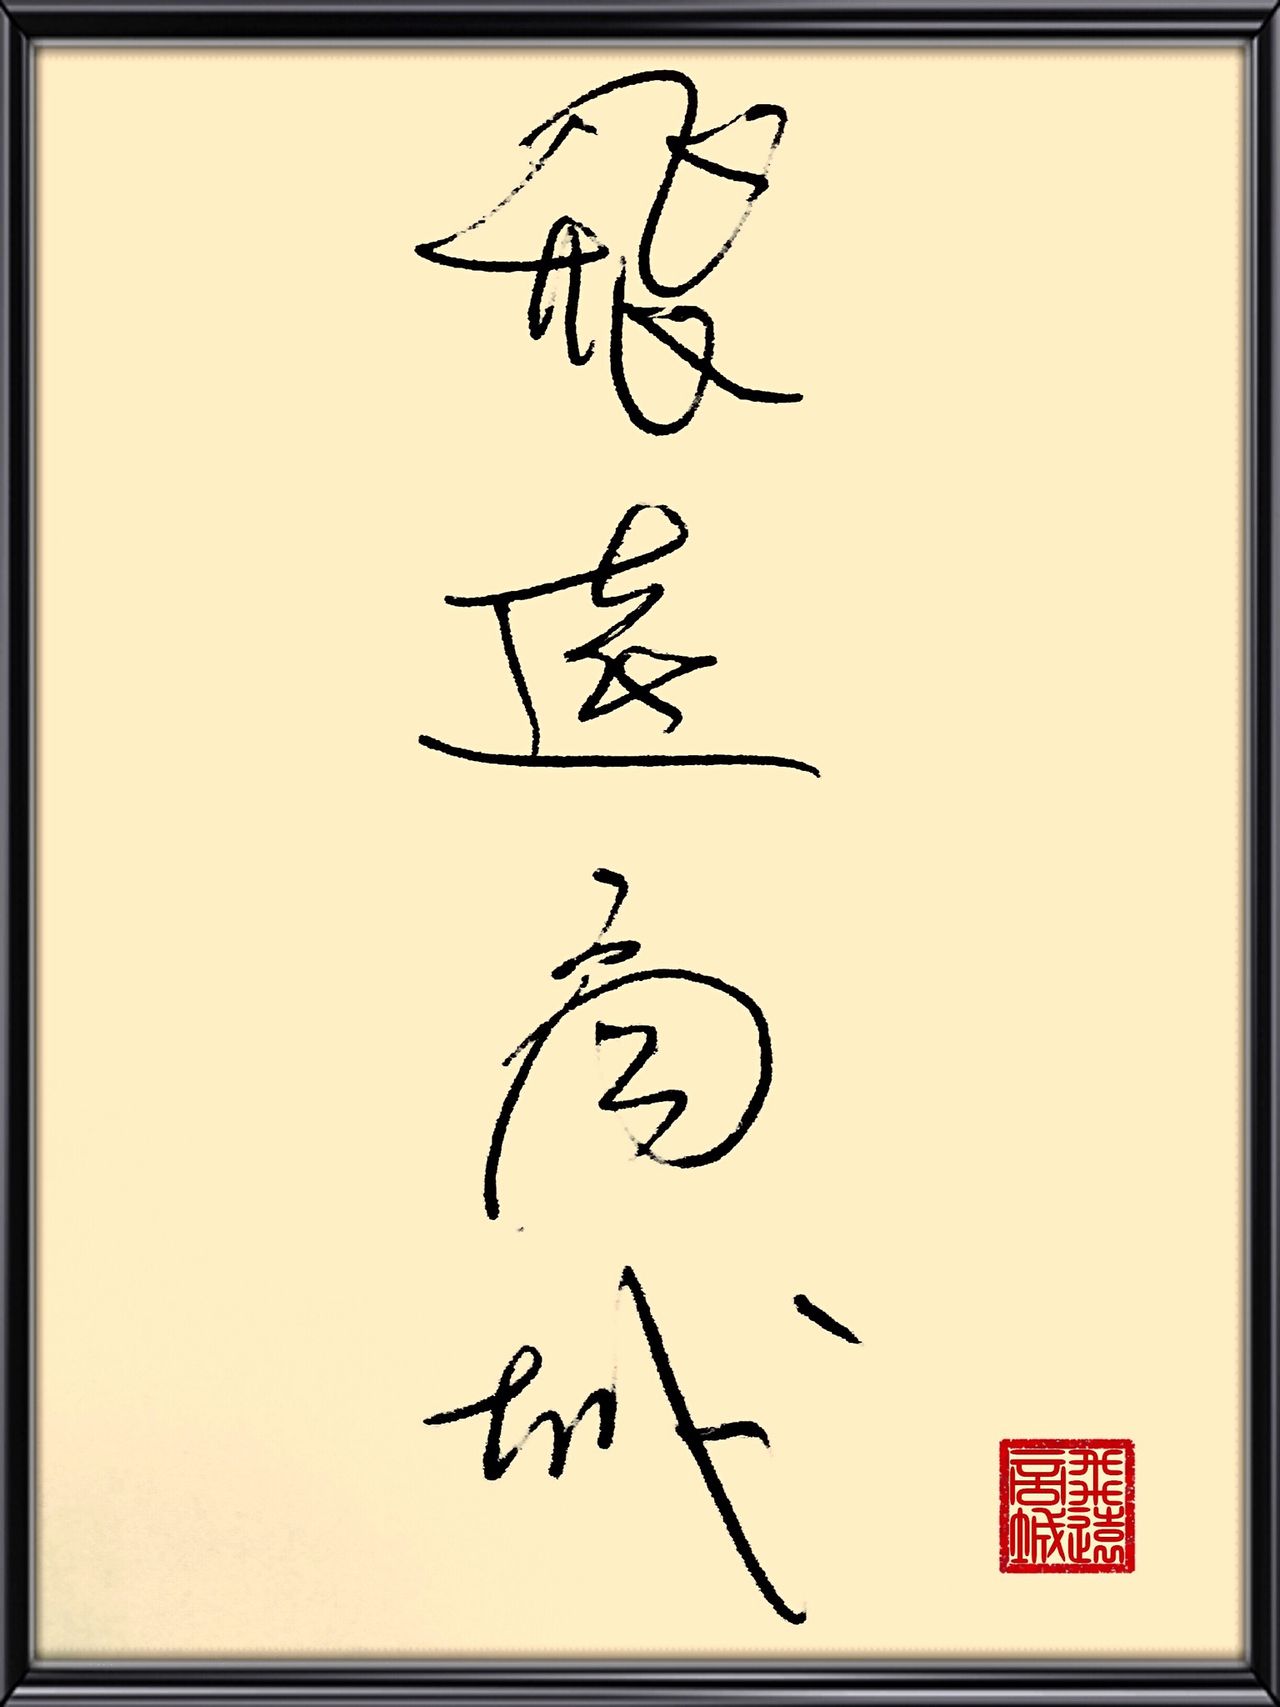 飛遠高城
飛遠
高城